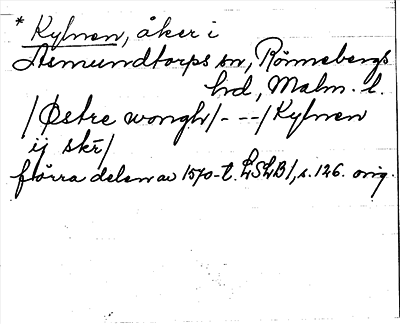 * Kylnen, åker i
Asmundtorps sn, Rönnebergs
hd, Malm. l.
/Østre wongh/- --/Kylnen
ij skr̄/
förra delen av 1570-t. LSLB1, s. 126. orig.